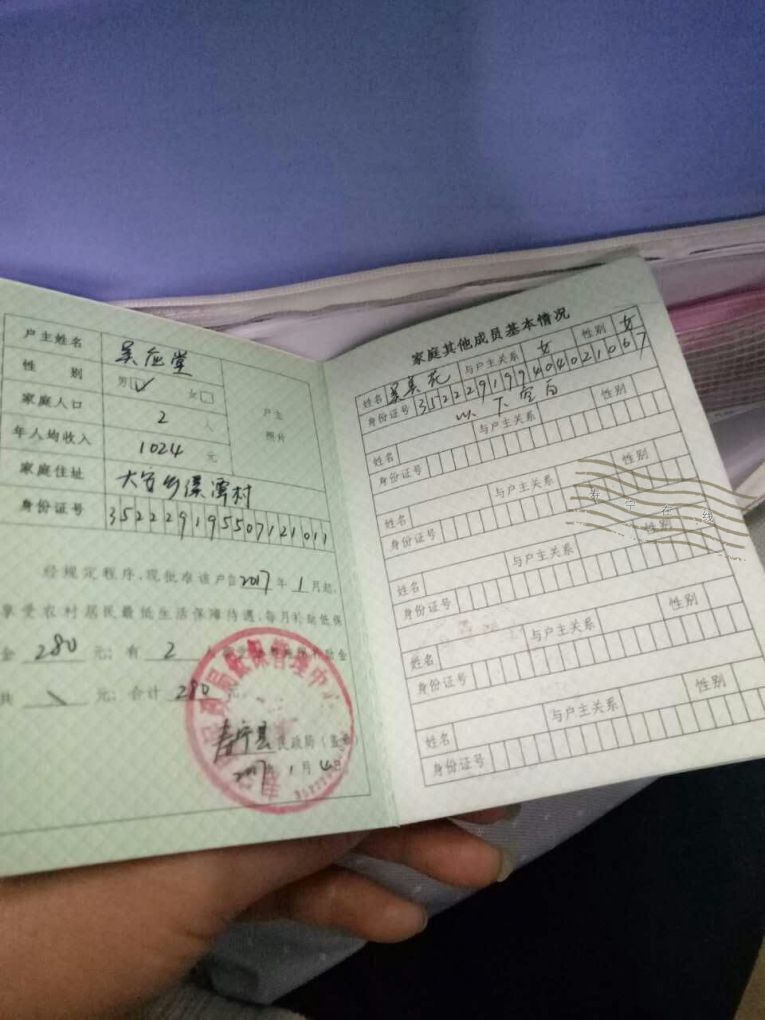 户主姓名 吴应堂
性别 男☑ 女□
户主
照片
家庭人口 2 人
年人均收入 1024 元
家庭住址 大安乡溪潭村
身份证号 352229195507121011
经规定程序,现批准该户自2017年1月起,
享受农村居民最低生活保障待遇,每月补助低保
金 280 元;有 2 人
共 \ 元;合计 280 元。
寿宁县民政局(盖章)
2017年1月4日
民政局低保管理中心
家庭其他成员基本情况
姓名 吴美 与户主关系 女 性别 女
身份证号 352229199404021067
以下空白
姓名 与户主关系 性别
身份证号
姓名 与户主关系 性别
身份证号
姓名 与户主关系 性别
身份证号
姓名 与户主关系 性别
身份证号
姓名 与户主关系 性别
身份证号
寿宁在线